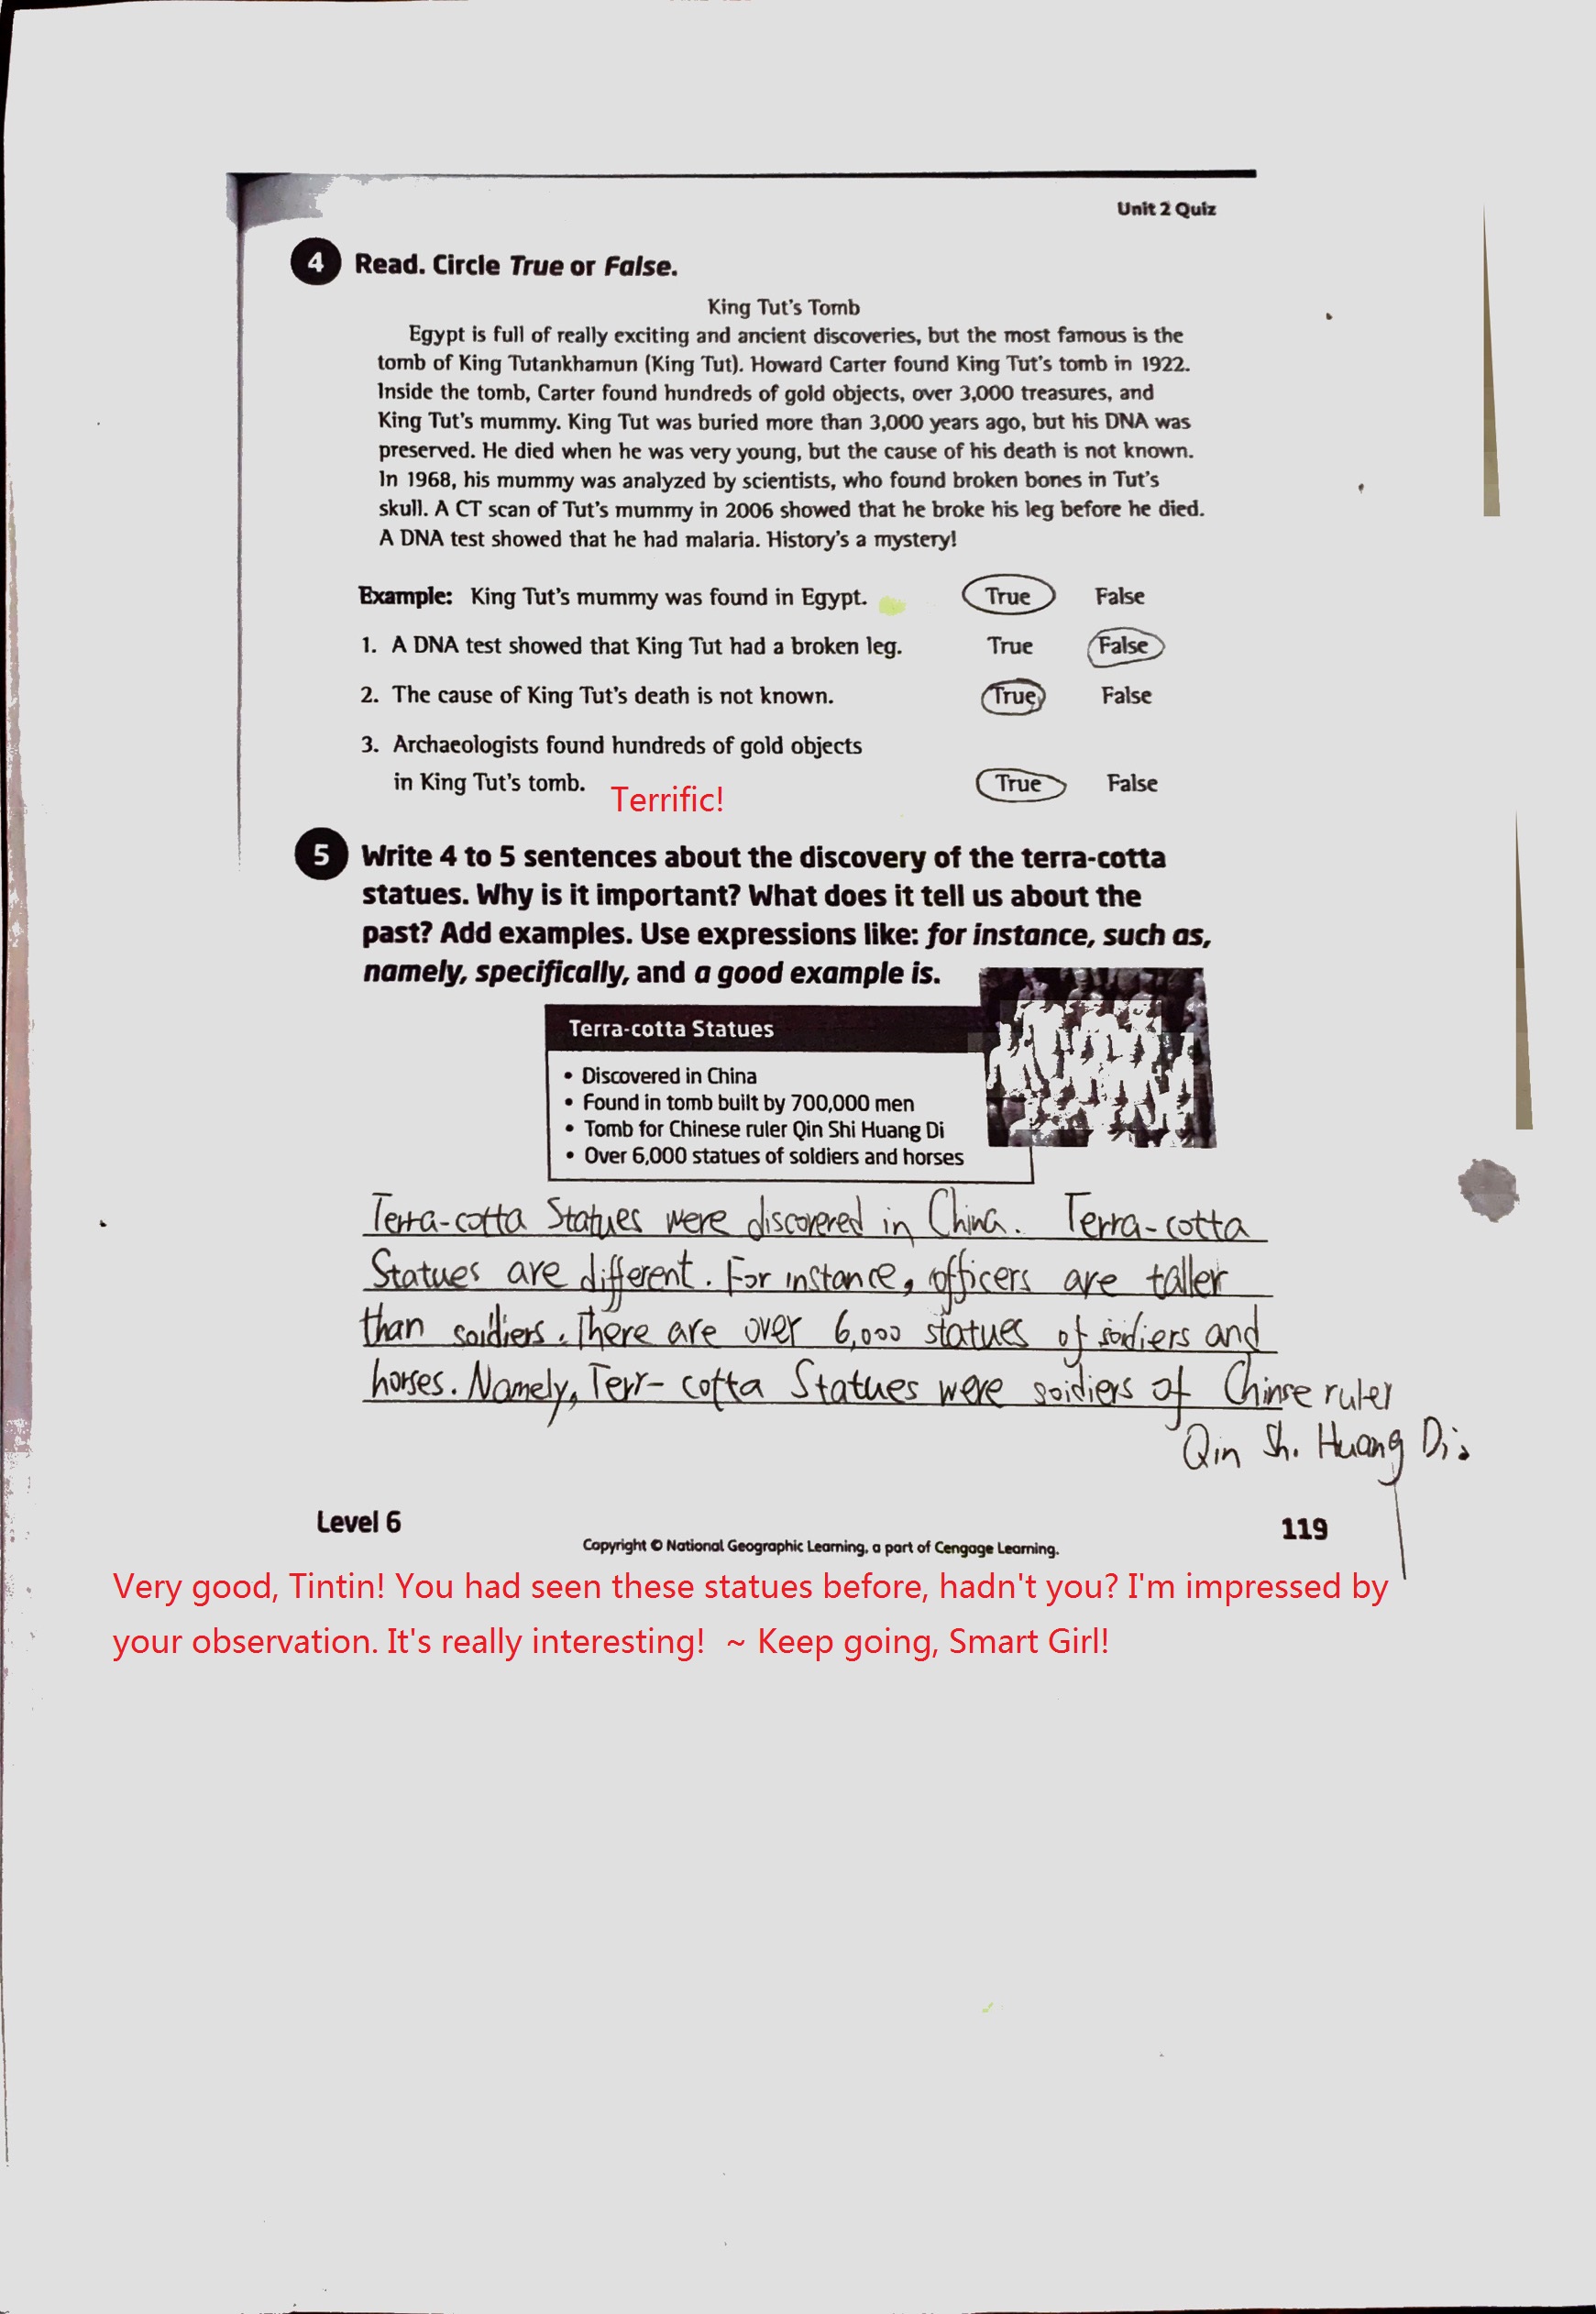 Unit 2 Quiz
4 Read. Circle True or False.
King Tut's Tomb
Egypt is full of really exciting and ancient discoveries, but the most famous is the
tomb of King Tutankhamun (King Tut). Howard Carter found King Tut's tomb in 1922.
Inside the tomb, Carter found hundreds of gold objects, over 3,000 treasures, and
King Tut's mummy. King Tut was buried more than 3,000 years ago, but his DNA was
preserved. He died when he was very young, but the cause of his death is not known.
In 1968, his mummy was analyzed by scientists, who found broken bones in Tut's
skull. A CT scan of Tut's mummy in 2006 showed that he broke his leg before he died.
A DNA test showed that he had malaria. History's a mystery!
Example: King Tut's mummy was found in Egypt. True False
1. A DNA test showed that King Tut had a broken leg. True False
2. The cause of King Tut's death is not known. True False
3. Archaeologists found hundreds of gold objects
in King Tut's tomb. Terrific! True False
5 Write 4 to 5 sentences about the discovery of the terra-cotta
statues. Why is it important? What does it tell us about the
past? Add examples. Use expressions like: for instance, such as,
namely, specifically, and a good example is.
Terra-cotta Statues
• Discovered in China
• Found in tomb built by 700,000 men
• Tomb for Chinese ruler Qin Shi Huang Di
• Over 6,000 statues of soldiers and horses
Terra-cotta Statues were discovered in China. Terra-cotta
Statues are different. For instance, officers are taller
than soidiers. There are over 6,000 statues of soidiers and
horses. Namely, Terr-cotta Statues were soidiers of Chinse ruler
Qin Shi Huang Di.
Level 6 119
Copyright © National Geographic Learning, a part of Cengage Learning.
Very good, Tintin! You had seen these statues before, hadn't you? I'm impressed by
your observation. It's really interesting! ~ Keep going, Smart Girl!